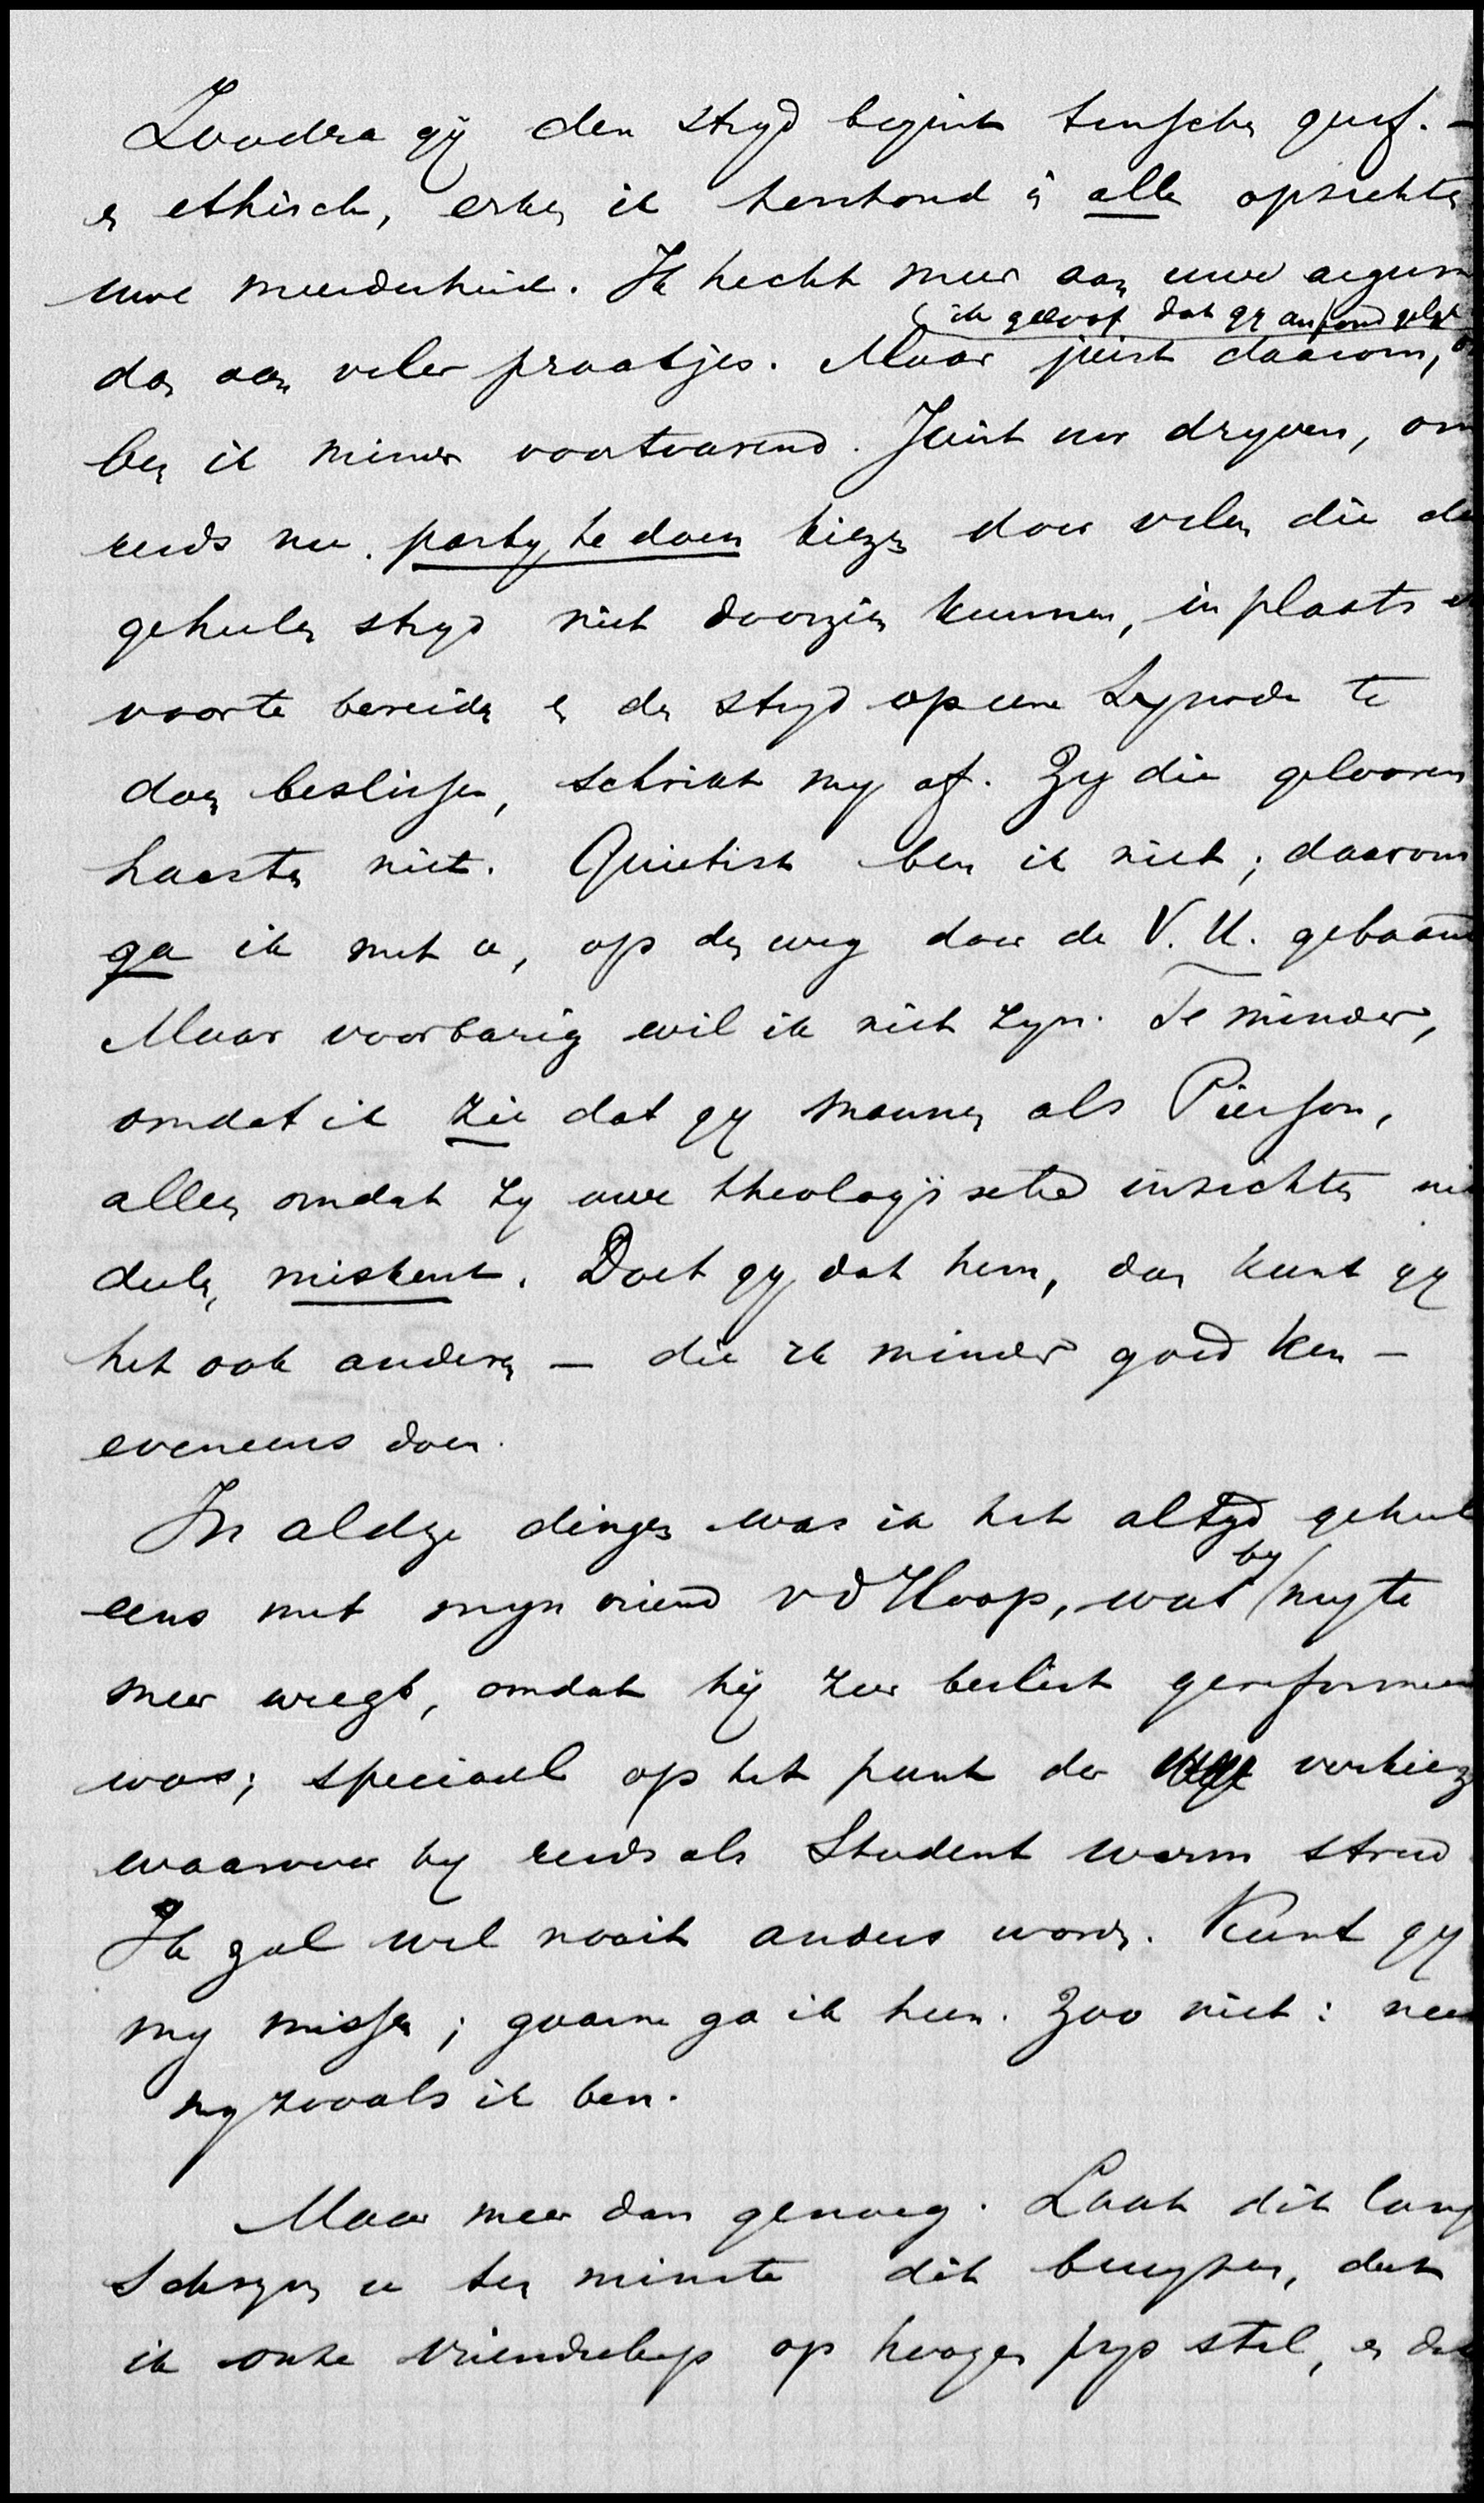 Zoodra gij den stryd begint tusschen geref. –
en ethisch, erken ik terstond in alle opzichten
uwe meerderheid. Ik hecht meer aan uwe argum
(ik geloof dat gy
dan aan veler praatjes. Maar juist daarom,
ben ik minder voortvarend. Juist uw dryven, om
reeds nu party te doen kiezen door velen die de
geheelen stryd niet doorzien kunnen, in plaats
voor te bereiden en den stryd op eene Synode te
doen beslissen, schrikt my af. Zy die gelooven
haasten niet. Quietist ben ik niet; daarom
ga ik met u, op den weg door de V. U. gebaand
Maar voorbarig wil ik niet zyn. Te minder,
omdat ik zie dat gy mannen als Pierson,
alleen omdat zy uwe theologische inzichten
deelen, miskent. Doet gy dat hem, dan kunt gy
het ook anderen – die ik minder goed ken –
eveneens doen.
In al deze dingen was ik het altyd geheel
eens met myn vriend vd Hoop, wat by my te
meer weegt, omdat hij zeer beslist gereformeer
was; speciaal op het punt der verkiez
waarover hy reeds als Student warm streed
Ik zal wel nooit anders worden. Kunt gy
my missen; gaarne ga ik heen. Zoo niet: nee
my zooals ik ben.
Maar meer dan genoeg. Laat dit lang
schryven u ten minste dit bewyzen, dat
ik onze vriendschap op hoogen prys stel, en dat